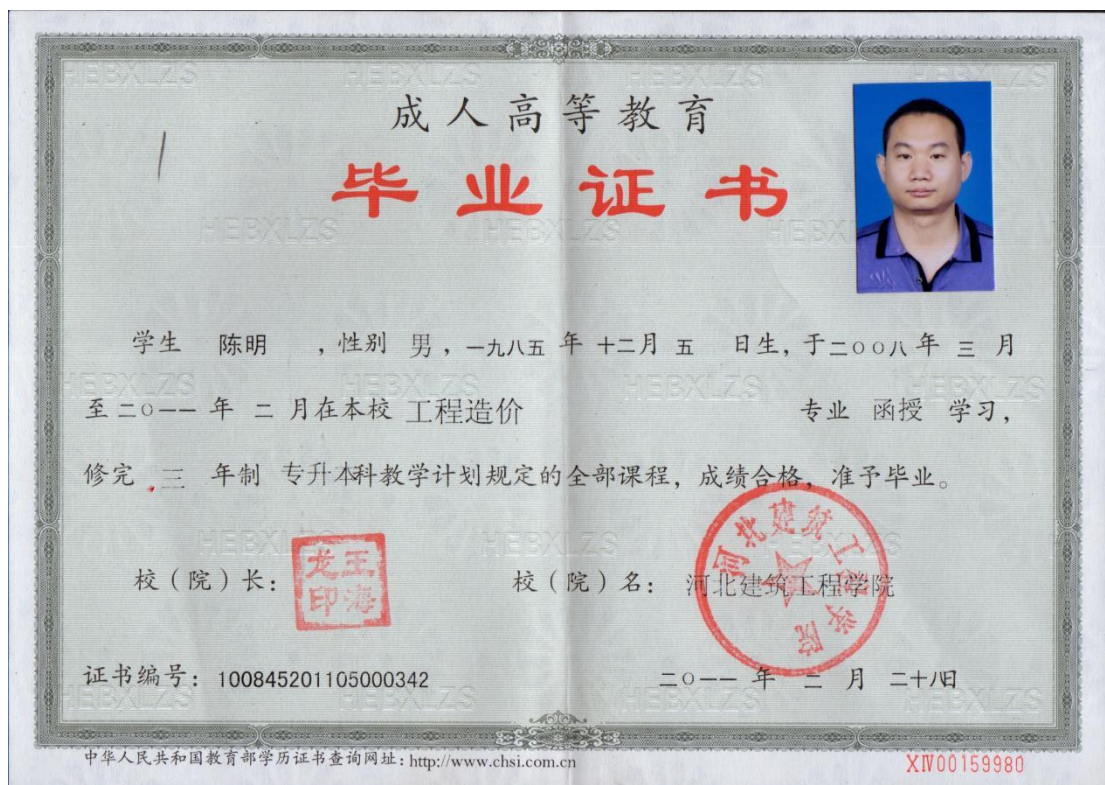 成人高等教育
毕业证书
学生 陈明 ，性别 男，一九八五 年 十二月 五 日生，于二○○八年 三 月
至二○一一 年 二 月在本校 工程造价 专业 函授 学习，
修完 三 年制 专升本科教学计划规定的全部课程，成绩合格，准予毕业。
校（院）长：
王海龙印
校（院）名： 河北建筑工程学院
河北建筑工程学院
证书编号：100845201105000342
二○一一 年 二 月 二十八日
中华人民共和国教育部学历证书查询网址：http://www.chsi.com.cn
XIV00159980
HEBXLZS